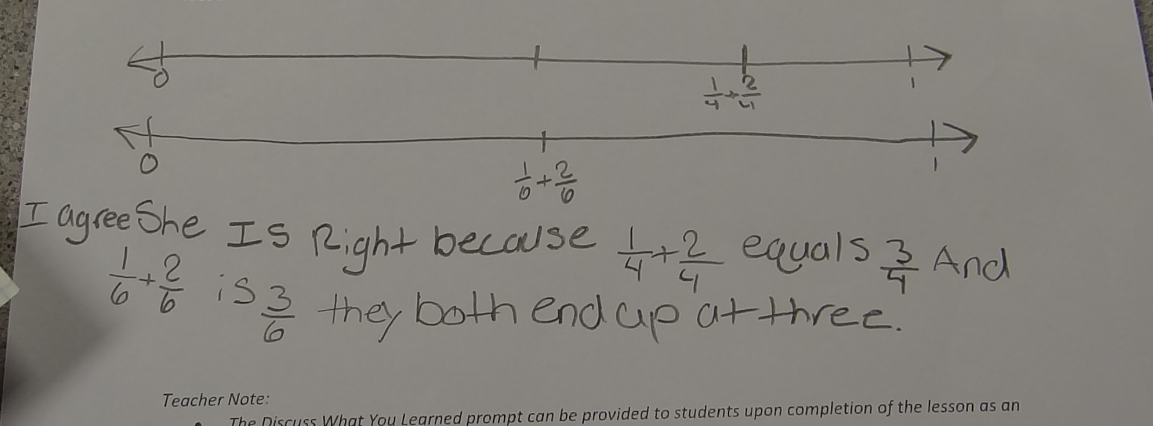 0 1/4+2/4 1
0 1/6+2/6 1
I agree She IS Right because 1/4+2/4 equals 3/4 And
1/6+2/6 is 3/6 they both end up at three.
Teacher Note:
• The Discuss What You Learned prompt can be provided to students upon completion of the lesson as an